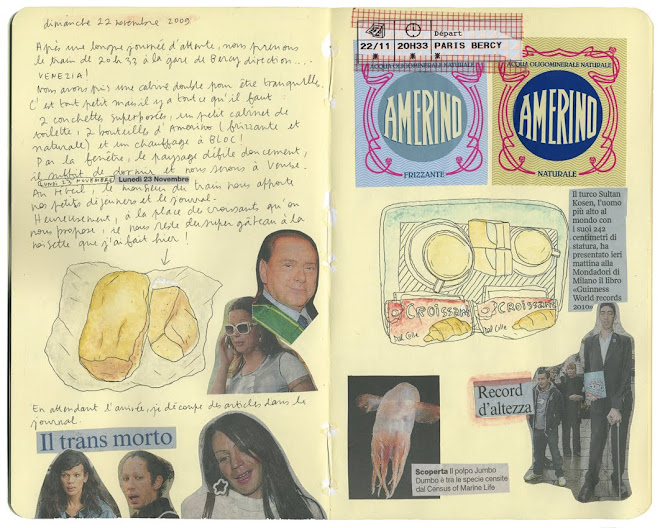 dimanche 22 novembre 2009
Après une longue journée d'attente, nous prenons
le train de 20h33 à la gare de Bercy direction....
VENEZIA!
Nous avons pris une cabine double pour être tranquilles.
C'est tout petit mais il y a tout ce qu'il faut :
2 couchettes superposées, un petit cabinet de
toilette, 2 bouteilles d'Amerino (frizzante et
naturale) et un chauffage à BLOC!
Par la fenêtre, le paysage défile doucement,
il suffit de dormir et nous serons à Venise.
LUNDI 23 NOVEMBRE Lunedì 23 Novembre
Au réveil, le monsieur du train nous apporte
nos petits déjeuners et le journal.
Heureusement, à la place des croissants qu'on
nous propose, il nous reste du super gâteau à la
noisette que j'ai fait hier!
En attendant l'arrivée, je découpe des articles dans le
journal.
Il trans morto
Départ
22/11 20H33 PARIS BERCY
* * *
ACQUA OLIGOMINERALE NATURALE
AMERINO
FRIZZANTE
ACQUA OLIGOMINERALE NATURALE
AMERINO
NATURALE
Il turco Sultan
Kosen, l'uomo
più alto al
mondo con
i suoi 242
centimetri di
statura, ha
presentato ieri
mattina alla
Mondadori di
Milano il libro
«Guinness
World records
2010»
CROISSANT
Dal Colle
CROISSANT
Dal Colle
Record
d'altezza
Scoperta Il polpo Jumbo
Dumbo è tra le specie censite
dal Census of Marine Life